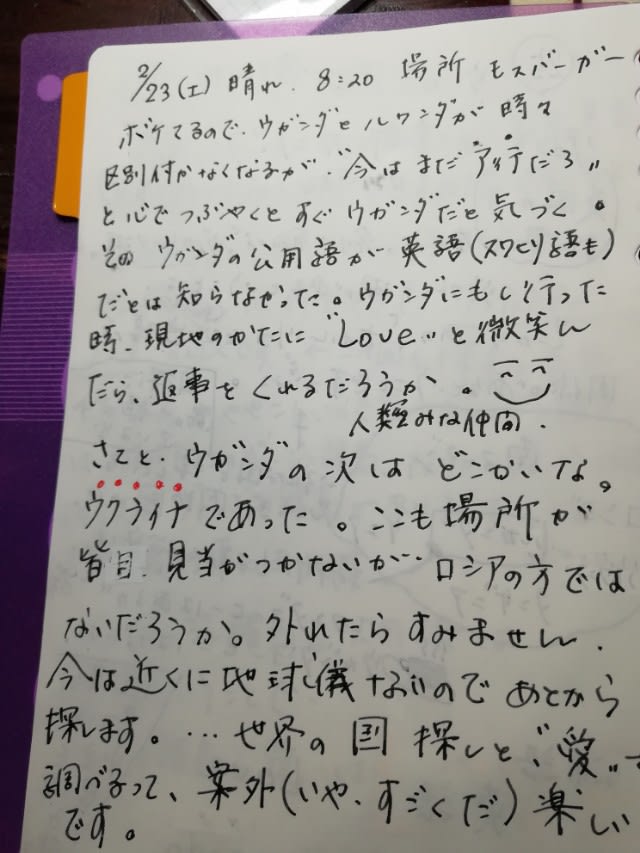 2/23(土) 晴れ. 8:20 場所 モスバーガー
ボケてるので、ウガンダとルワンダが時々
区別付かなくなるが、"今はまだアィテだろ"
と心でつぶやくとすぐウガンダだと気づく。
そのウガンダの公用語が英語(スワヒリ語も)
だとは知らなかった。ウガンダにもし行った
時、現地のかたに"Love"と微笑ん
だら、返事をくれるだろうか。
人類みな仲間.
さてと、ウガンダの次はどこかいな。
ウクライナであった。ここも場所が
皆目、見当がつかないが、ロシアの方では
ないだろうか。外れたらすみません.
今は近くに地球儀ないのであとから
探します。…世界の国探しと、"愛"
調べるって、案外(いや、すごくだ)楽しい
です。